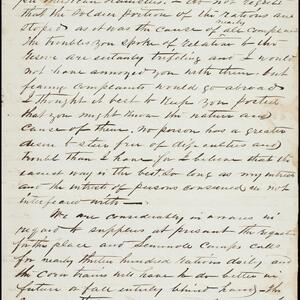 that the Soldier portion of the rations are
stoped as it was the cause of all complaint
The troubles you spoke of relative to the
are certainly trifeling and I would
not have annoyed you with them but
fearing complaints would go abroad
I thought it best to Keep you posted
that you might Know the nature and
cause of them. No person has a greater
desire to steer free of dificulties and
trouble than I have for I believe that the
easiest way is the best so long as my interest
and the intrest of persons concerned is not
interfered with —
We are considerably in arrears in
regard to supplies at present the requst
for this place and Seminole Camps calls
for nearly thirteen hundred Rations daily and
the Corn trains will have to do better in
future or fall entirely behind hand, The